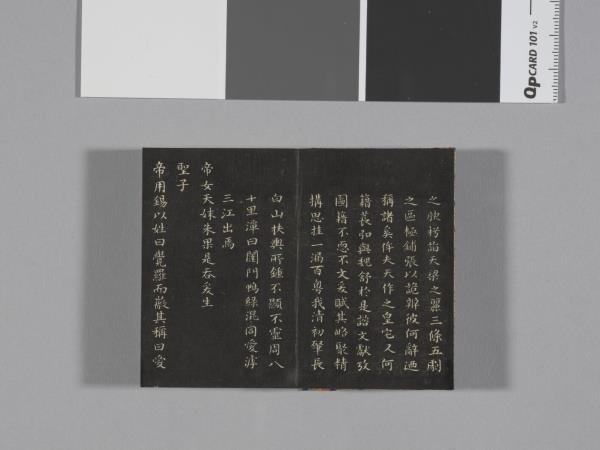 之肷枵詣天梁之麗三條五劇
之區極鋪張以詭辯彼何辭迺
稱諸奚侔夫天作之皇宅又何
藉萇弘與魏舒於是諮文獻攷
圖籍不愆不文爰賦其略聚精
搆思挂一漏百粵我清初肇長
白山扶輿所鍾不顯不靈周八
十里潭曰闥門鴨綠混同愛滹
三江出焉
帝女天妹朱果是吞爰生
聖子
帝用錫以姓曰覺羅而徽其稱曰愛
QPCARD 101 v2